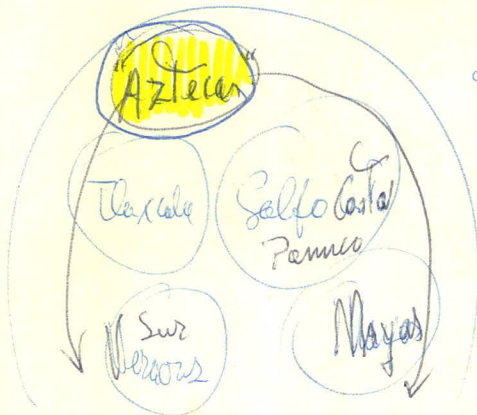 "Aztecas"
Tlaxcala
Golfo Costa
Panuco
Sur
Veracruz
Mayas